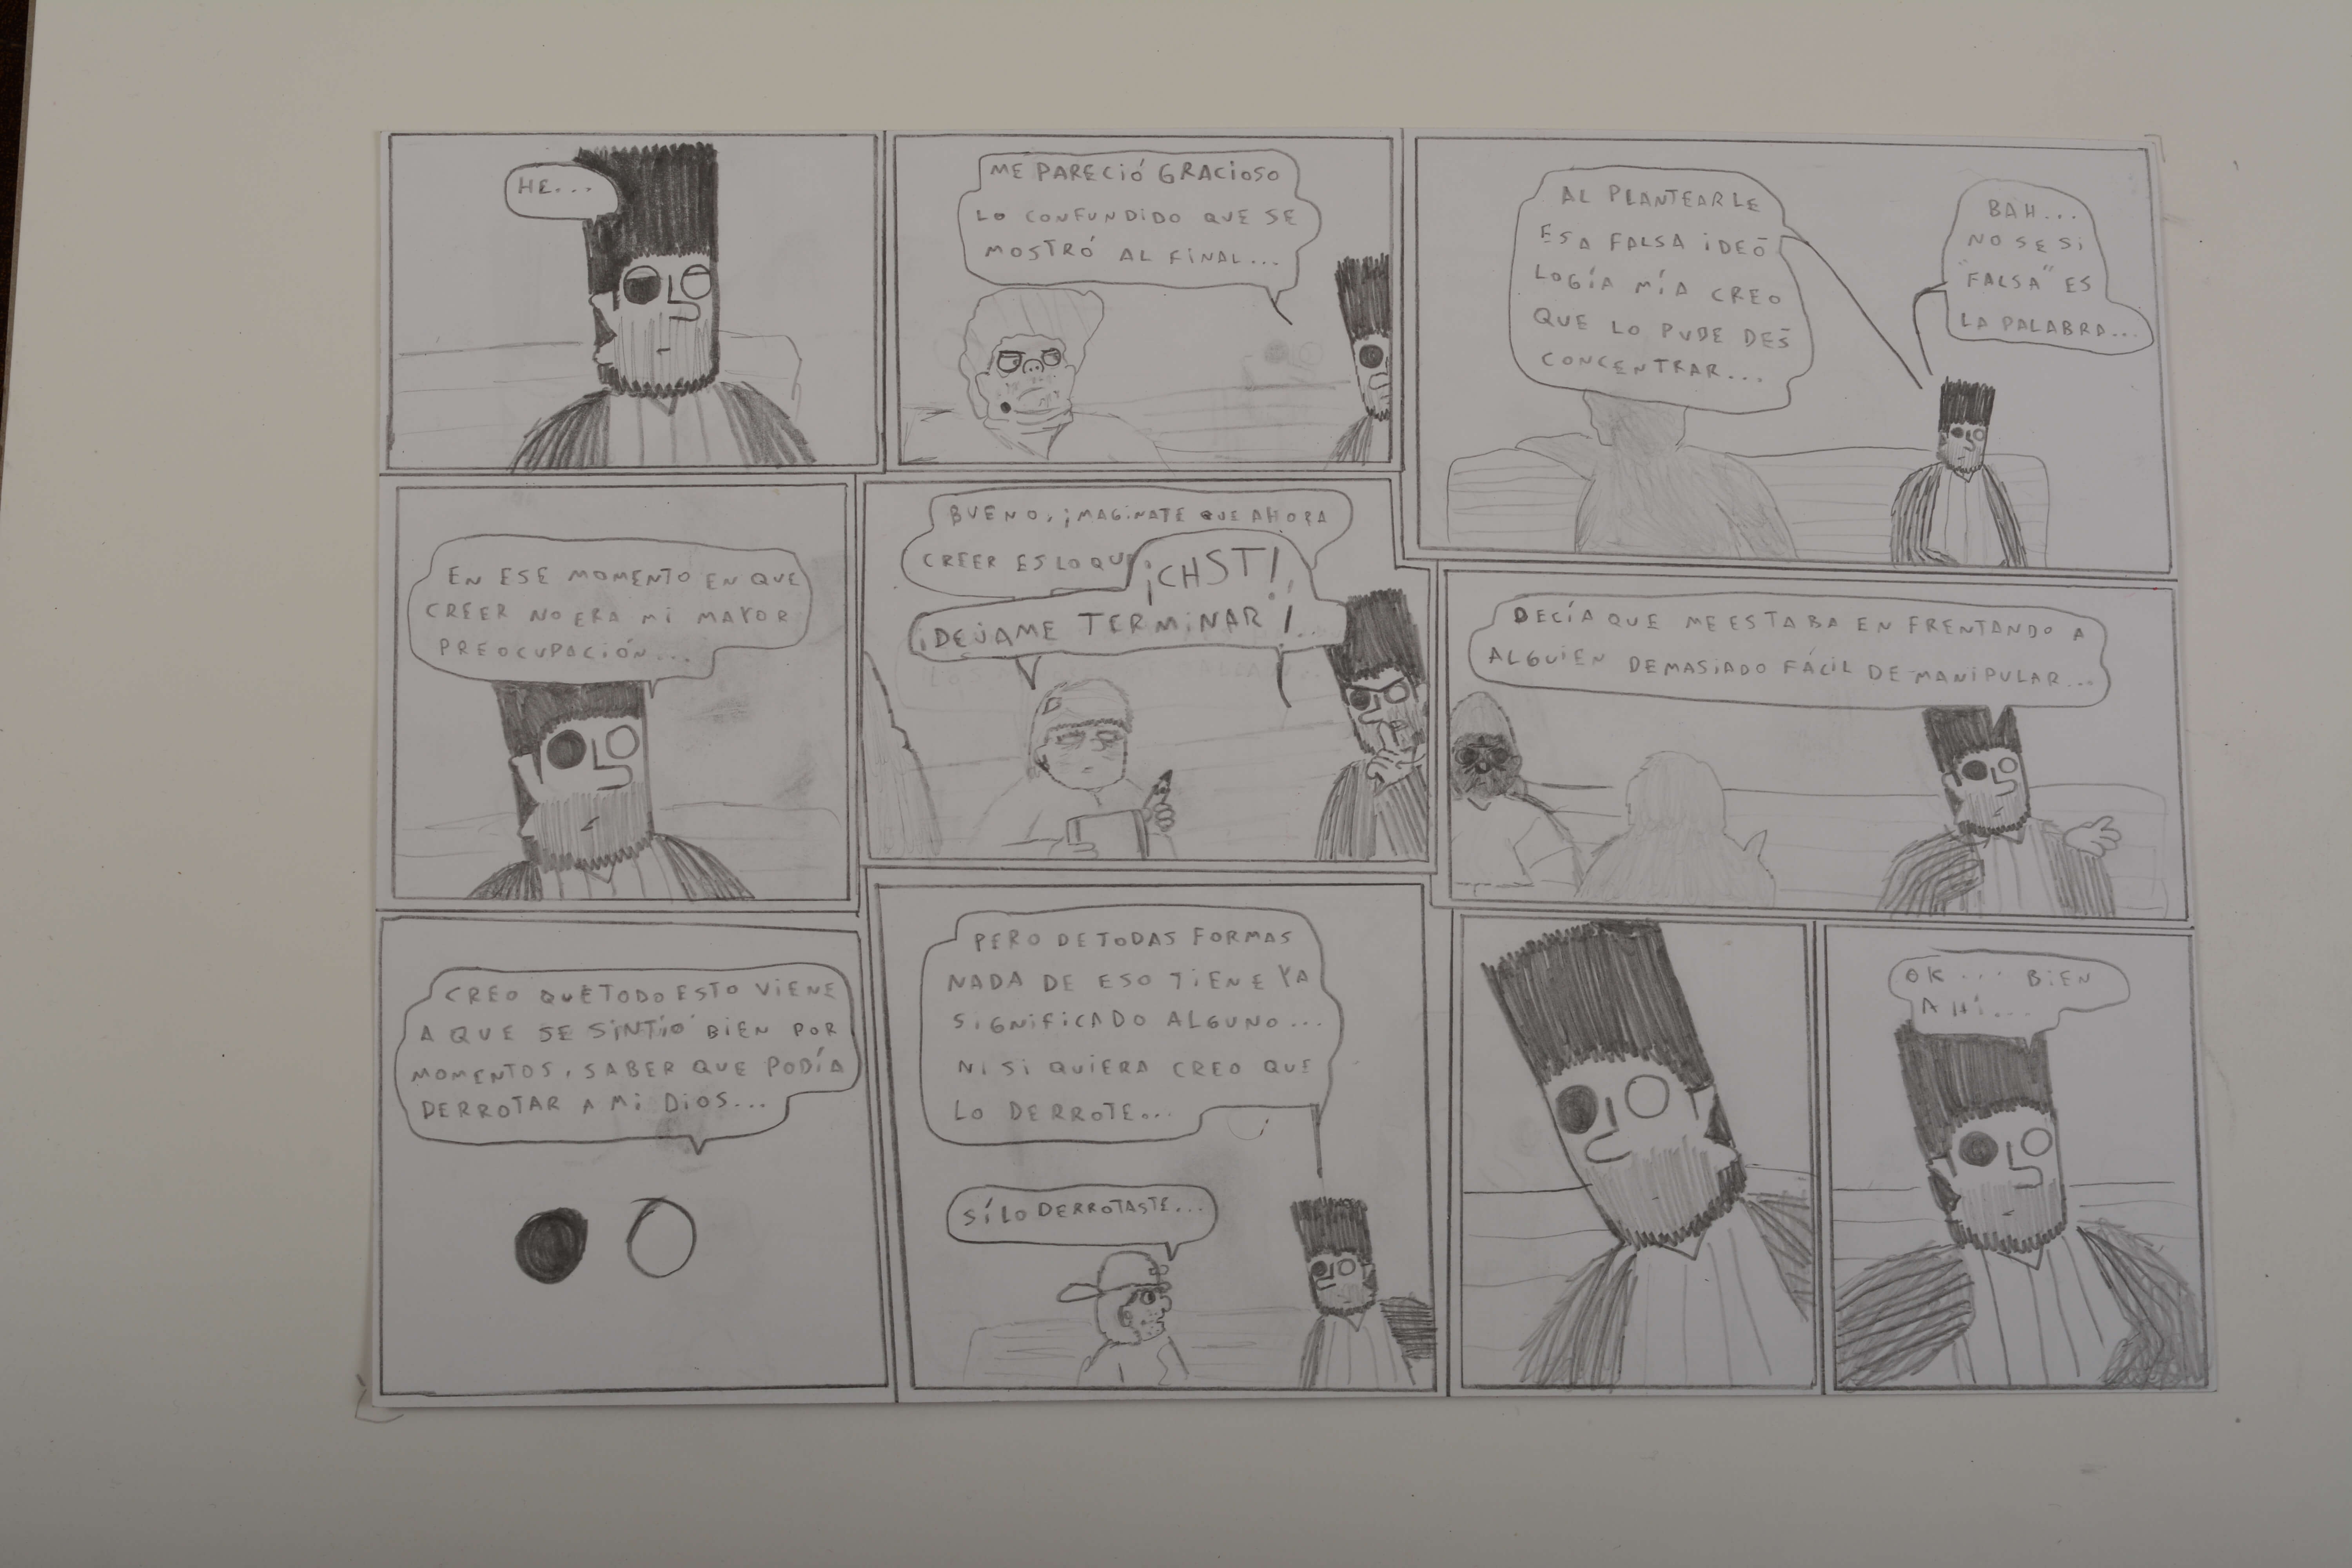 HE...
ME PARECIÓ GRACIOSO
LO CONFUNDIDO QUE SE
MOSTRÓ AL FINAL...
AL PLANTEARLE
ESA FALSA IDEO
LOGÍA MÍA CREO
QUE LO PUDE DES
CONCENTRAR...
BAH...
NO SE SI
"FALSA" ES
LA PALABRA...
EN ESE MOMENTO EN QUE
CREER NO ERA MI MAYOR
PREOCUPACIÓN...
BUENO, IMAGINATE QUE AHORA
CREER ES LO QU
¡CHST!
¡DEJAME TERMINAR!..
DECÍA QUE ME ESTABA EN FRENTANDO A
ALGUIEN DEMASIADO FÁCIL DE MANIPULAR...
CREO QUE TODO ESTO VIENE
A QUE SE SINTIÓ BIEN POR
MOMENTOS, SABER QUE PODÍA
DERROTAR A MI DIOS...
PERO DE TODAS FORMAS
NADA DE ESO TIENE YA
SIGNIFICADO ALGUNO...
NI SI QUIERA CREO QUE
LO DERROTE...
SÍ LO DERROTASTE...
OK... BIEN
AHÍ...